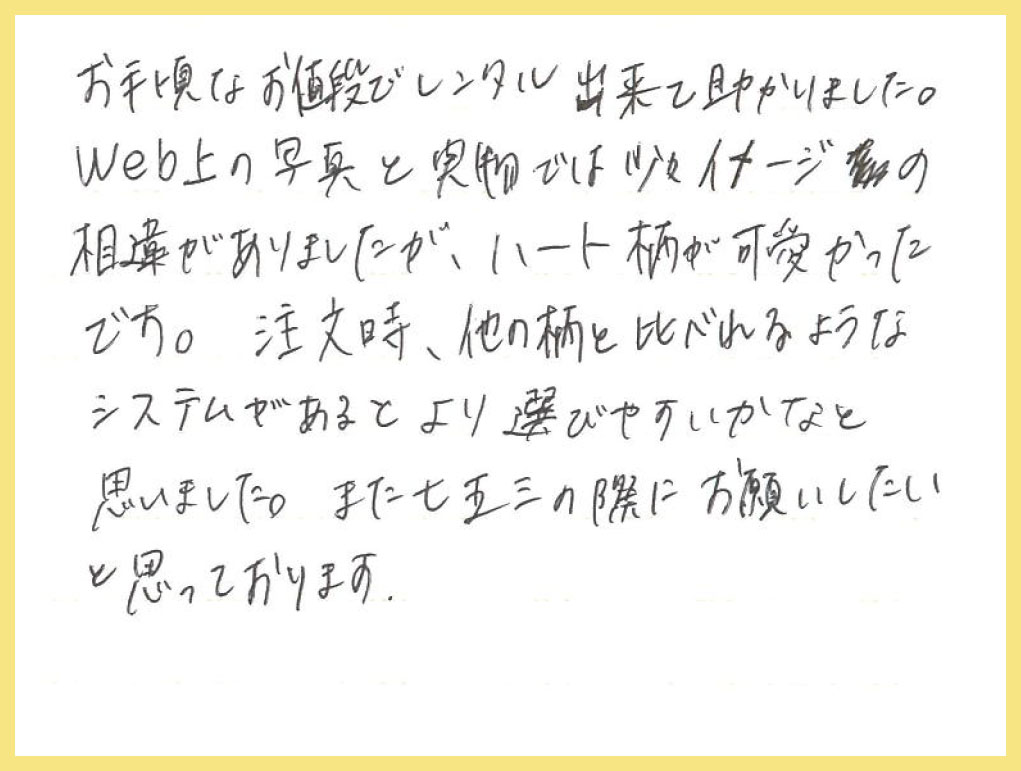 お手頃なお値段でレンタル出来て助かりました。
Web上の写真と実物では少々イメージの
相違がありましたが、ハート柄が可愛かった
です。 注文時、他の柄と比べれるような
システムがあるとより選びやすいかなと
思いました。また七五三の際にお願いしたい
と思っております.